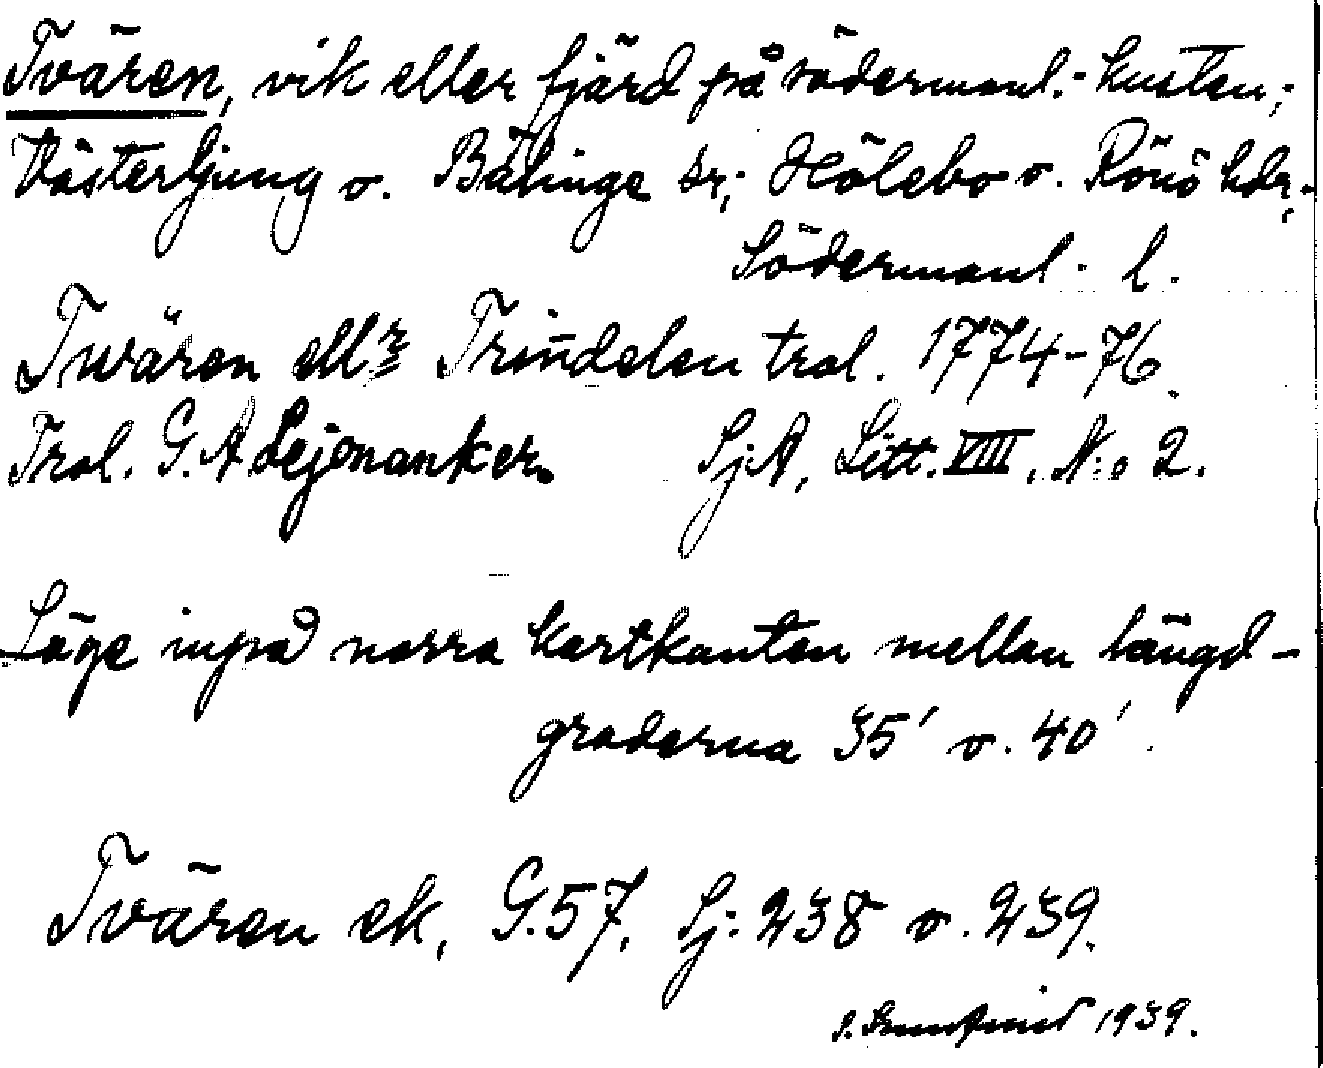 Tvären, vik eller fjärd på södermanl.-kusten;
Västerljung o. Bälinge sr; Hölebo o. Rönö hdr;
Södermanl. l.
Twären ellr Trindelen trol. 1774-76.
Trol. G. A Lejonanker. Sj.A, Litt. VIII, N:o 2.
Läge inpå norra kartkanten mellan längd-
graderna 35' o. 40'.
Tvären ek, G.57, Sj: 238 o. 239.
1939.